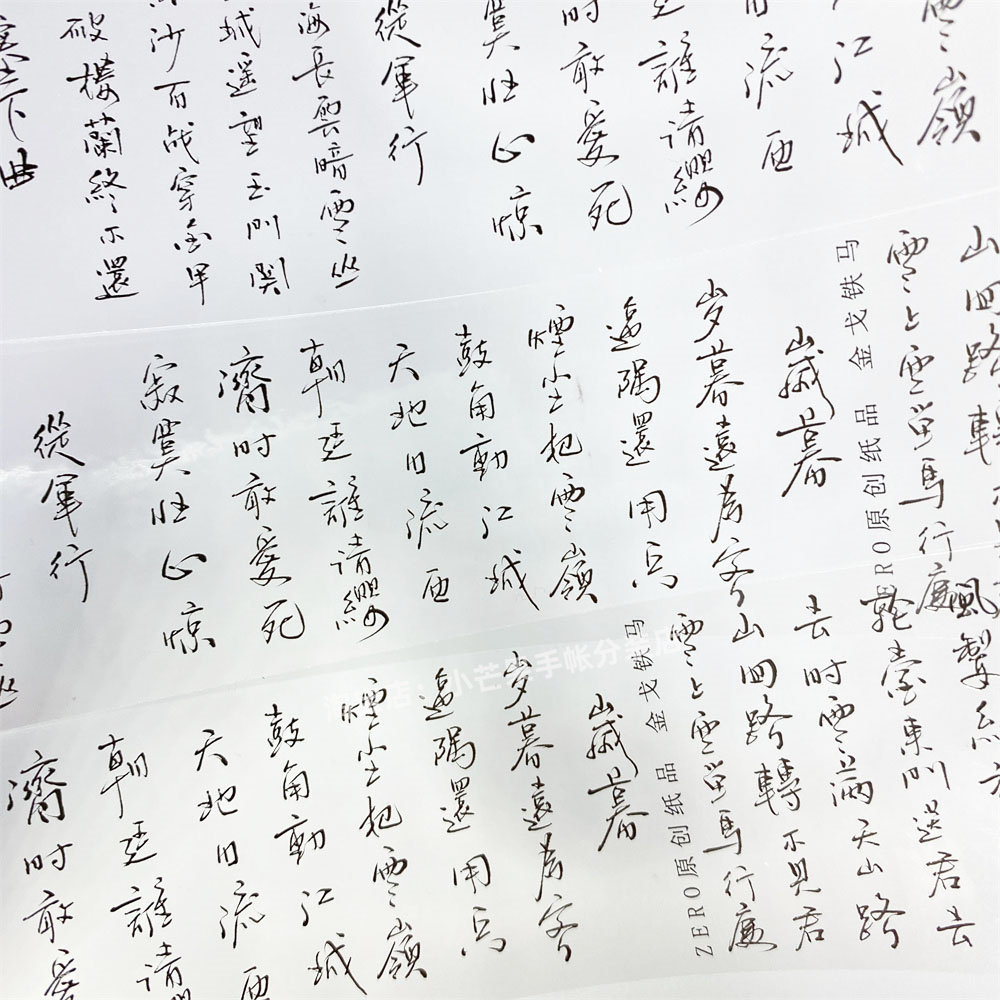 雪嶺
江城
日流血
廷誰請纓
時敢愛死
寞壯心惊
從軍行
海長雲暗雪山
城遥望玉門関
沙百战穿金甲
破樓蘭終不還
塞下曲
山回路轉
雪上空留馬行處
ZERO原创纸品 金戈铁马
歲暮
岁暮遠為客
邊隅還用兵
煙尘犯雪嶺
鼓角動江城
天地日流血
朝廷誰請纓
濟時敢愛死
寂寞壯心惊
從軍行
風掣红
輪臺東門送君去
去時雪滿天山路
山回路轉不見君
雪上空留馬行處
ZERO原创纸品 金戈铁马
歲暮
岁暮遠為客
邊隅還用兵
煙尘犯雪嶺
鼓角動江城
天地日流血
朝廷誰請
濟時敢愛